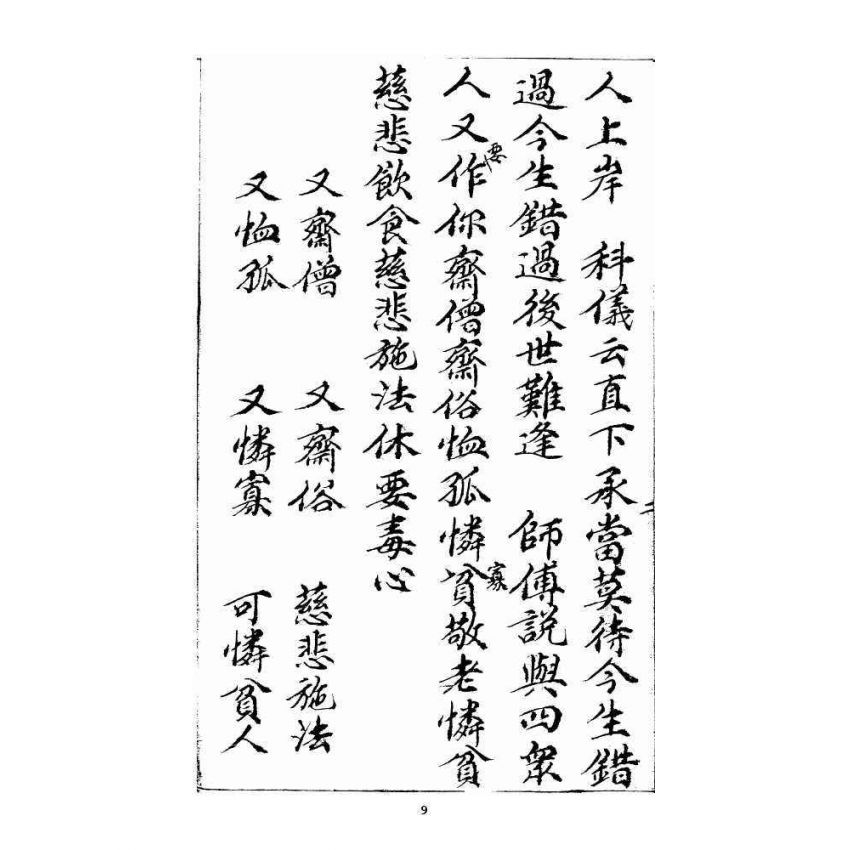 人上岸　科儀云直下承當莫待今生錯
過今生錯過後世難逢　師傅説與四衆
人又要作你齋僧齋俗恤孤憐寡貧敬老憐貧
慈悲飲食慈悲施法休要毒心
又齋僧　又齋俗　慈悲施法
又恤孤　又憐寡　可憐貧人
9